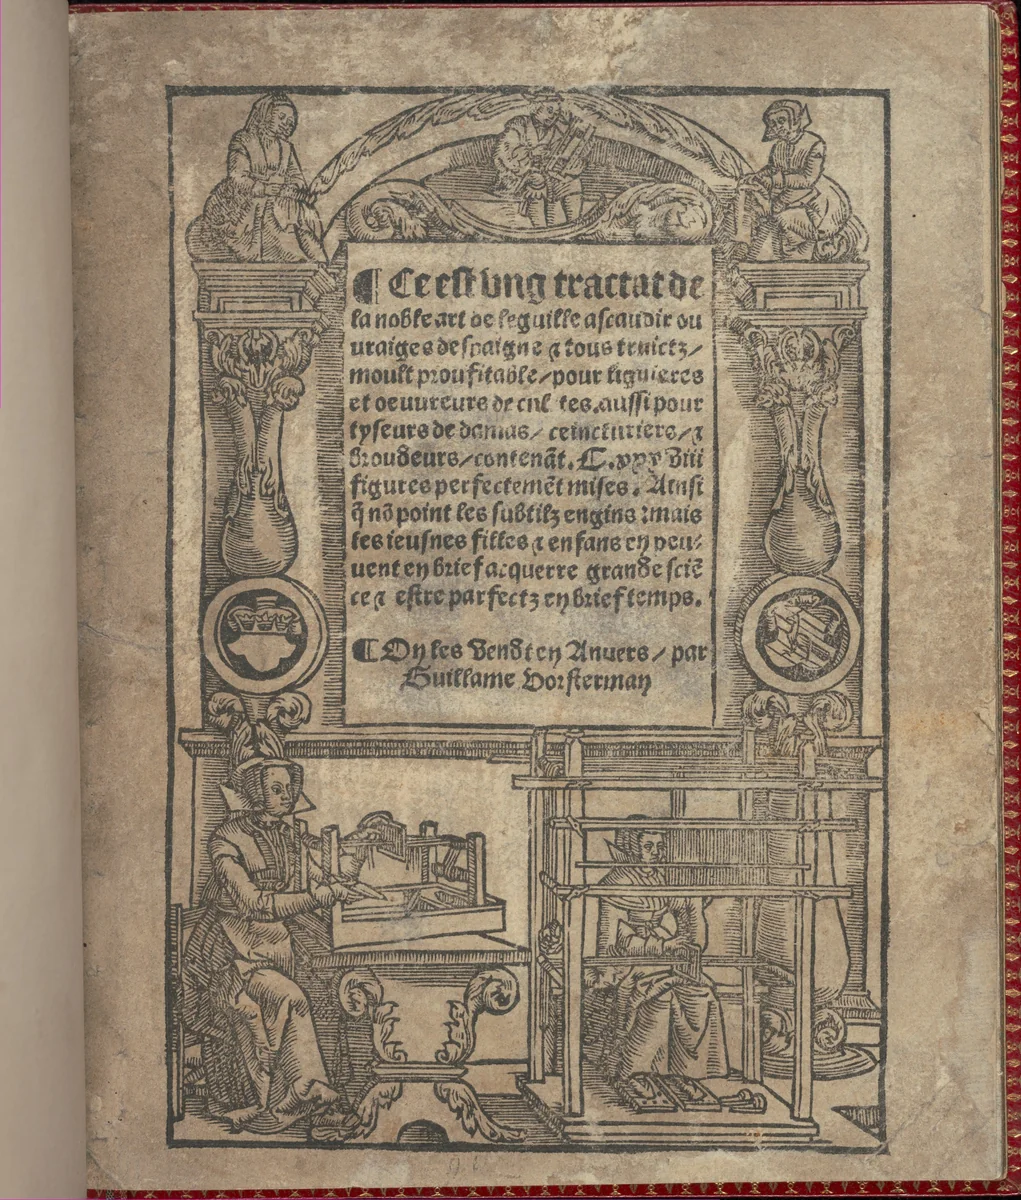 ¶ Ce est vng tractat de
la noble art de leguille ascauoir ou
uraiges de spaigne ⁊ tous
moult proufitable / pour
et oeuureurs de aussi pour
tyseurs de damas / ceincturiers / ⁊
broudeurs / contenāt. C. xxxviii
figures perfectemēt mises. Ainsi
q̄ nō point les subtilz engins : mais
les ieusnes filles ⁊ enfans en peu⸗
uent en brief acquerre grande sciē
ce ⁊ estre parfectz en brief temps.
¶ On les vendt en Anuers / par
Guillame Vorsterman